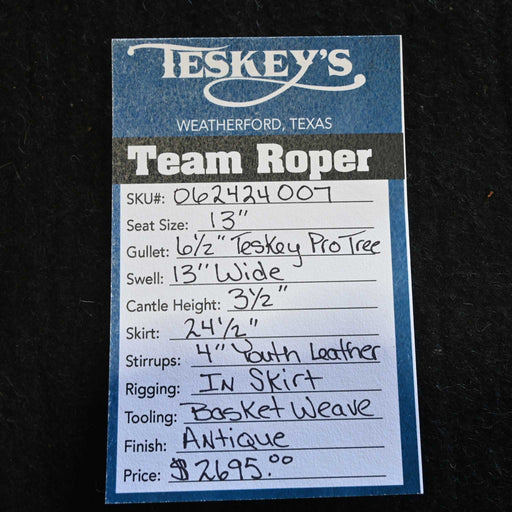 TESKEY'S
WEATHERFORD, TEXAS
Team Roper
SKU#: 062424007
Seat Size: 13"
Gullet: 6 1/2" Teskey Pro Tree
Swell: 13" Wide
Cantle Height: 3 1/2"
Skirt: 24 1/2"
Stirrups: 4" Youth Leather
Rigging: In Skirt
Tooling: Basket Weave
Finish: Antique
Price: $2695.00